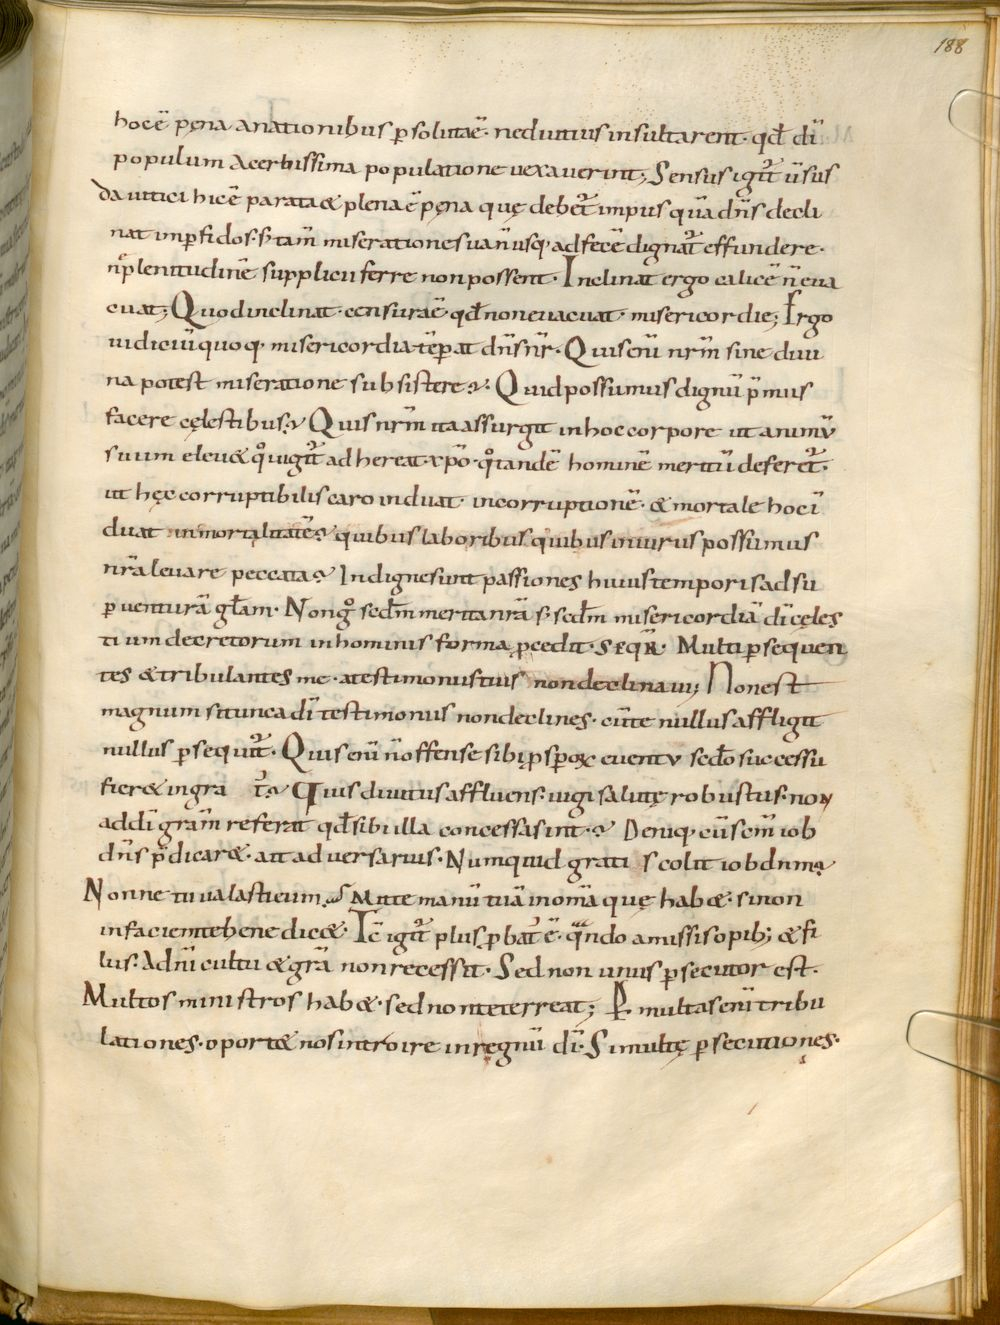 188
hoc ē pęna a nationibus ꝑsolutaē· ne diutius insultarent· qđ dī
populum acerbissima populatione vexaverint; Sensus igit̄ ūsus
davitici hic ē parata & plena ē pęna quę debet̄ impiis quā dn̄s decli
nat in ꝑfidos· s; tam̄ miserationes uan̄ usq· ad fecē dignat̄ effundere·
n̄ plenitudinē supplicii ferre non possent· Inclinat ergo calicē n̄ eva
cuat; Quod inclinat· censuraē· qđ non evacuat· misericordie; Ergo
iudiciū quoq· misericordia tēꝑat dn̄s nr̄· Quis enī nr̄m sine divi
na potest miseratione subsistere? Quid possumus dignū p̄mus
facere cęlestibus? Quis nr̄m ita assurgit in hoc corpore ut animū
suum elev& qͦ iugit̄ adhereat xp̄o· qͦ tandē hominē meritū deferet̄·
ut hęc corruptibilis caro induat· incorruptionē· & mortale hoc ī
duat inmortalitatē? quibus laboribus quibus iniuriis possumus
nr̄a levare peccata? Indigne sunt passiones huius temporis ad su
ꝑventurā gl̄am· Non gͦ scđm merita nr̄a s; scđm misericordiā dī cęles
tium decretorum in hominis forma ꝓcedit· SEQR̄· Multi ꝑsequen
tes & tribulantes me· a testimoniis tuis non declinavi; Non est
magnum si tunc a dī testimoniis non declines· cū te nullus affligit
nullus ꝑsequit̄· Quis enī n̄ offense sibi ꝓspo& eventu secđo successu
fier& ingra t̄? Quis divitiis affluens· iugi salutę robustus· non
ad dī gram̄ referat qđ sibi illa concessa sint? Deniq· cū scm̄ iob
dn̄s p̄dicar&· ait adversarius· Numquid grati s colit iob dnm?
Nonne tu valasti eum? Mitte manū tuā in om̄a quę hab&· si non
in faciem te benedic&· Ic̄ igit̄ plus ꝓbat̄ ē· qndo amissis opib; & fi
liis· Ad n̄i cultu & grā non recessit· Sed non unus ꝑsecutor est·
Multos ministros hab&· sed non te terreat; P multas enī tribu
lationes· oport& nos introire in regnū dī· Si multę ꝑsecutiones·